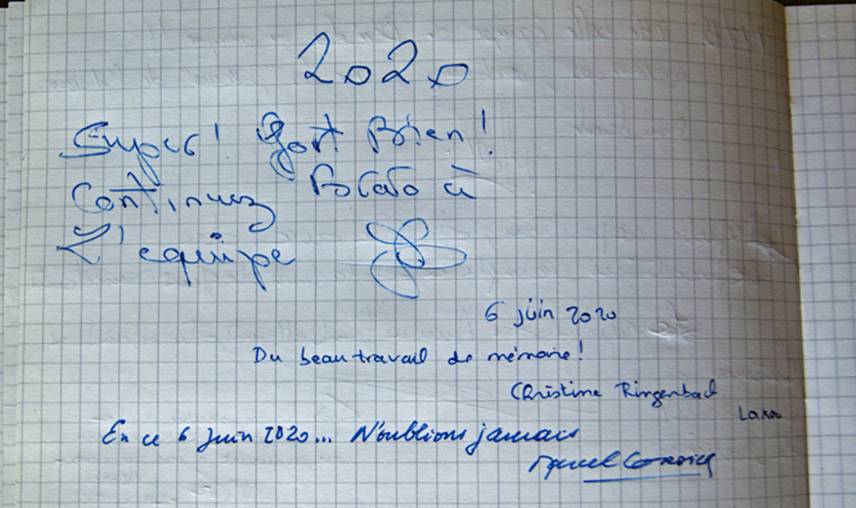 2020
Super! Fort Bien!
Continuez Bravo à
L'equipe
6 juin 2020
Du beau travail de mémoire!
Christine Ringenbach
Lara
En ce 6 juin 2020... N'oublions jamais